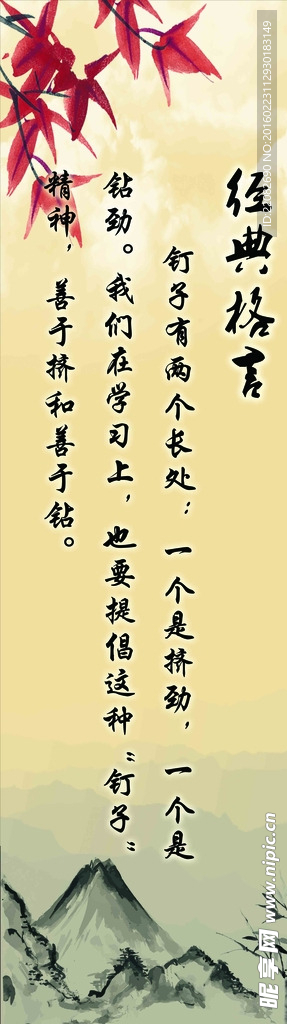 经典格言
钉子有两个长处：一个是挤劲，一个是
钻劲。我们在学习上，也要提倡这种“钉子”
精神，善于挤和善于钻。
昵享网 www.nipic.cn